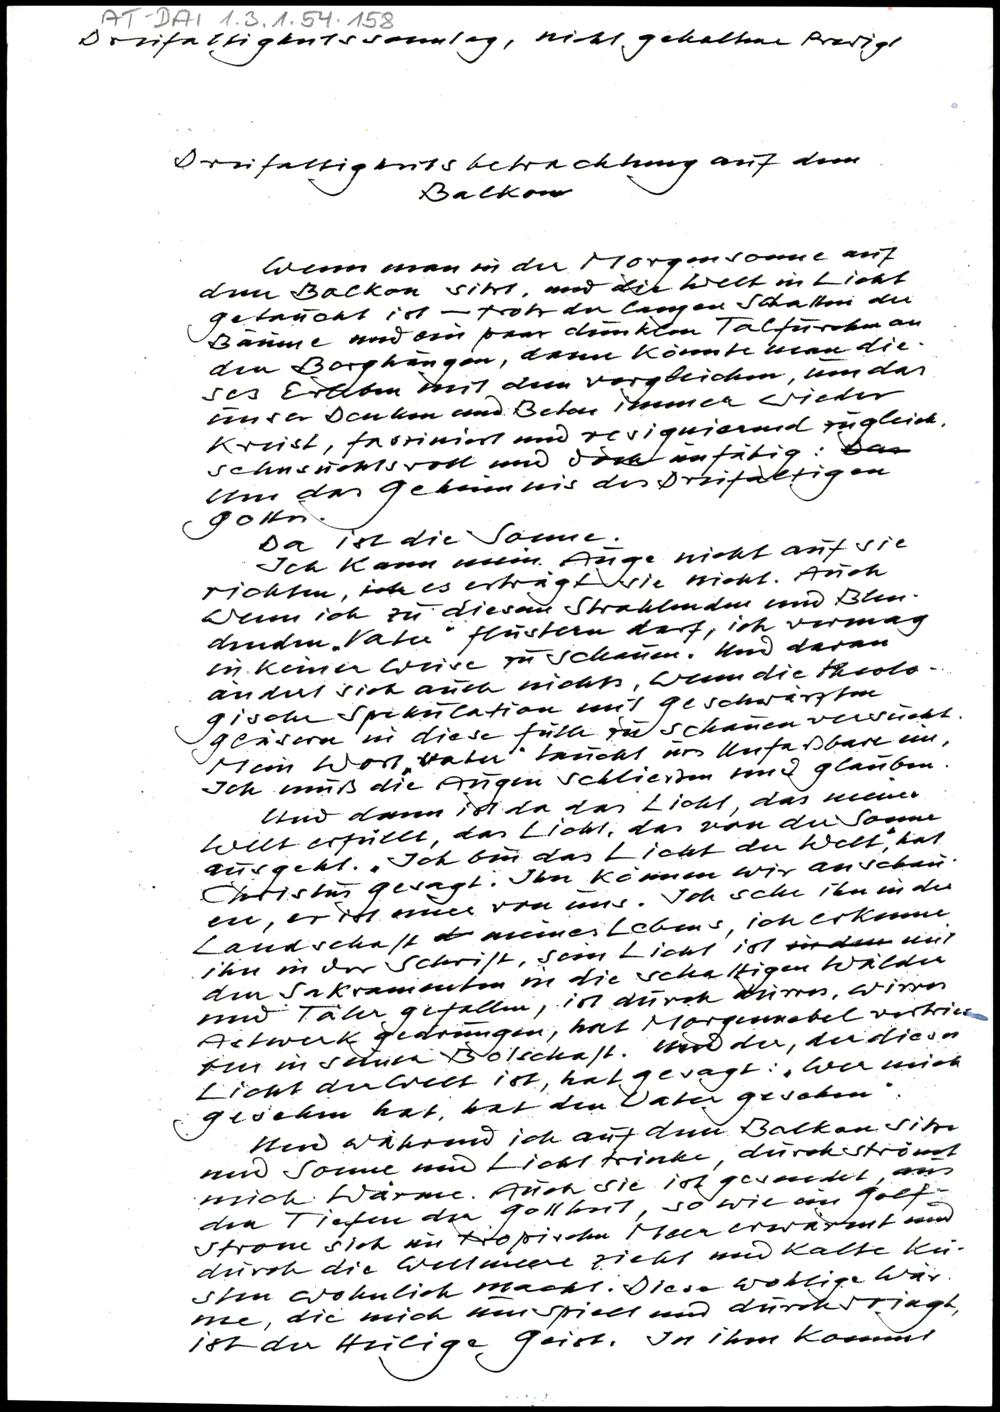 AT-DAI 1.3.1.54.158
Dreifaltigkeitssonntag, nicht gehaltene Predigt
Dreifaltigkeitsbetrachtung auf dem
Balkon
Wenn man in der Morgensonne auf
dem Balkon sitzt, und die Welt in Licht
getaucht ist – trotz der langen Schatten der
Bäume und ein paar dunklen Talfurchen an
den Berghängen, dann könnte man die-
ses Erleben mit dem vergleichen, um das
unser Denken und Beten immer wieder
kreist, fasziniert und resignierend zugleich,
sehnsuchtsvoll und doch unfähig: Das
Um das Geheimnis des Dreifaltigen
Gottes.
Da ist die Sonne.
Ich kann mein Auge nicht auf sie
richten, ich es erträgt sie nicht. Auch
wenn ich zu diesem Strahlenden und Blen-
denden „Vater" flüstern darf, ich vermag
in keiner Weise zu schauen. Und daran
ändert sich auch nichts, wenn die theolo-
gische Spekulation mit geschwärzten
Gläsern in diese Fülle zu schauen versucht.
Mein Wort „Vater" taucht ins Unfaßbare ein,
Ich muß die Augen schließen und glauben.
Und dann ist da das Licht, das meine
Welt erfüllt, das Licht, das von der Sonne
ausgeht. „Ich bin das Licht der Welt", hat
Christus gesagt. Ihn können wir anschau-
en, er ist einer von uns. Ich sehe ihn in der
Landschaft meines Lebens, ich erkenne
ihn in der Schrift, sein Licht ist in den mit
den Sakramenten in die schattigen Wälder
und Täler gefallen, ist durch dürres, wirres
Astwerk gedrungen, hat Morgennebel vertrie-
ben in seiner Botschaft. Und der, der dieses
Licht der Welt ist, hat gesagt: „Wer mich
gesehen hat, hat den Vater gesehen".
Und während ich auf dem Balkon sitze
und Sonne und Licht trinke, durchströmt
mich Wärme. Auch sie ist gesendet, aus
den Tiefen der Gottheit, so wie ein Golf-
strom sich im tropischen Meer erwärmt und
durch die Weltmeere zieht und kalte Kü-
sten wohnlich macht. Diese wohlige Wär-
me, die mich umspielt und durchdringt,
ist der Heilige Geist. In ihm kommt